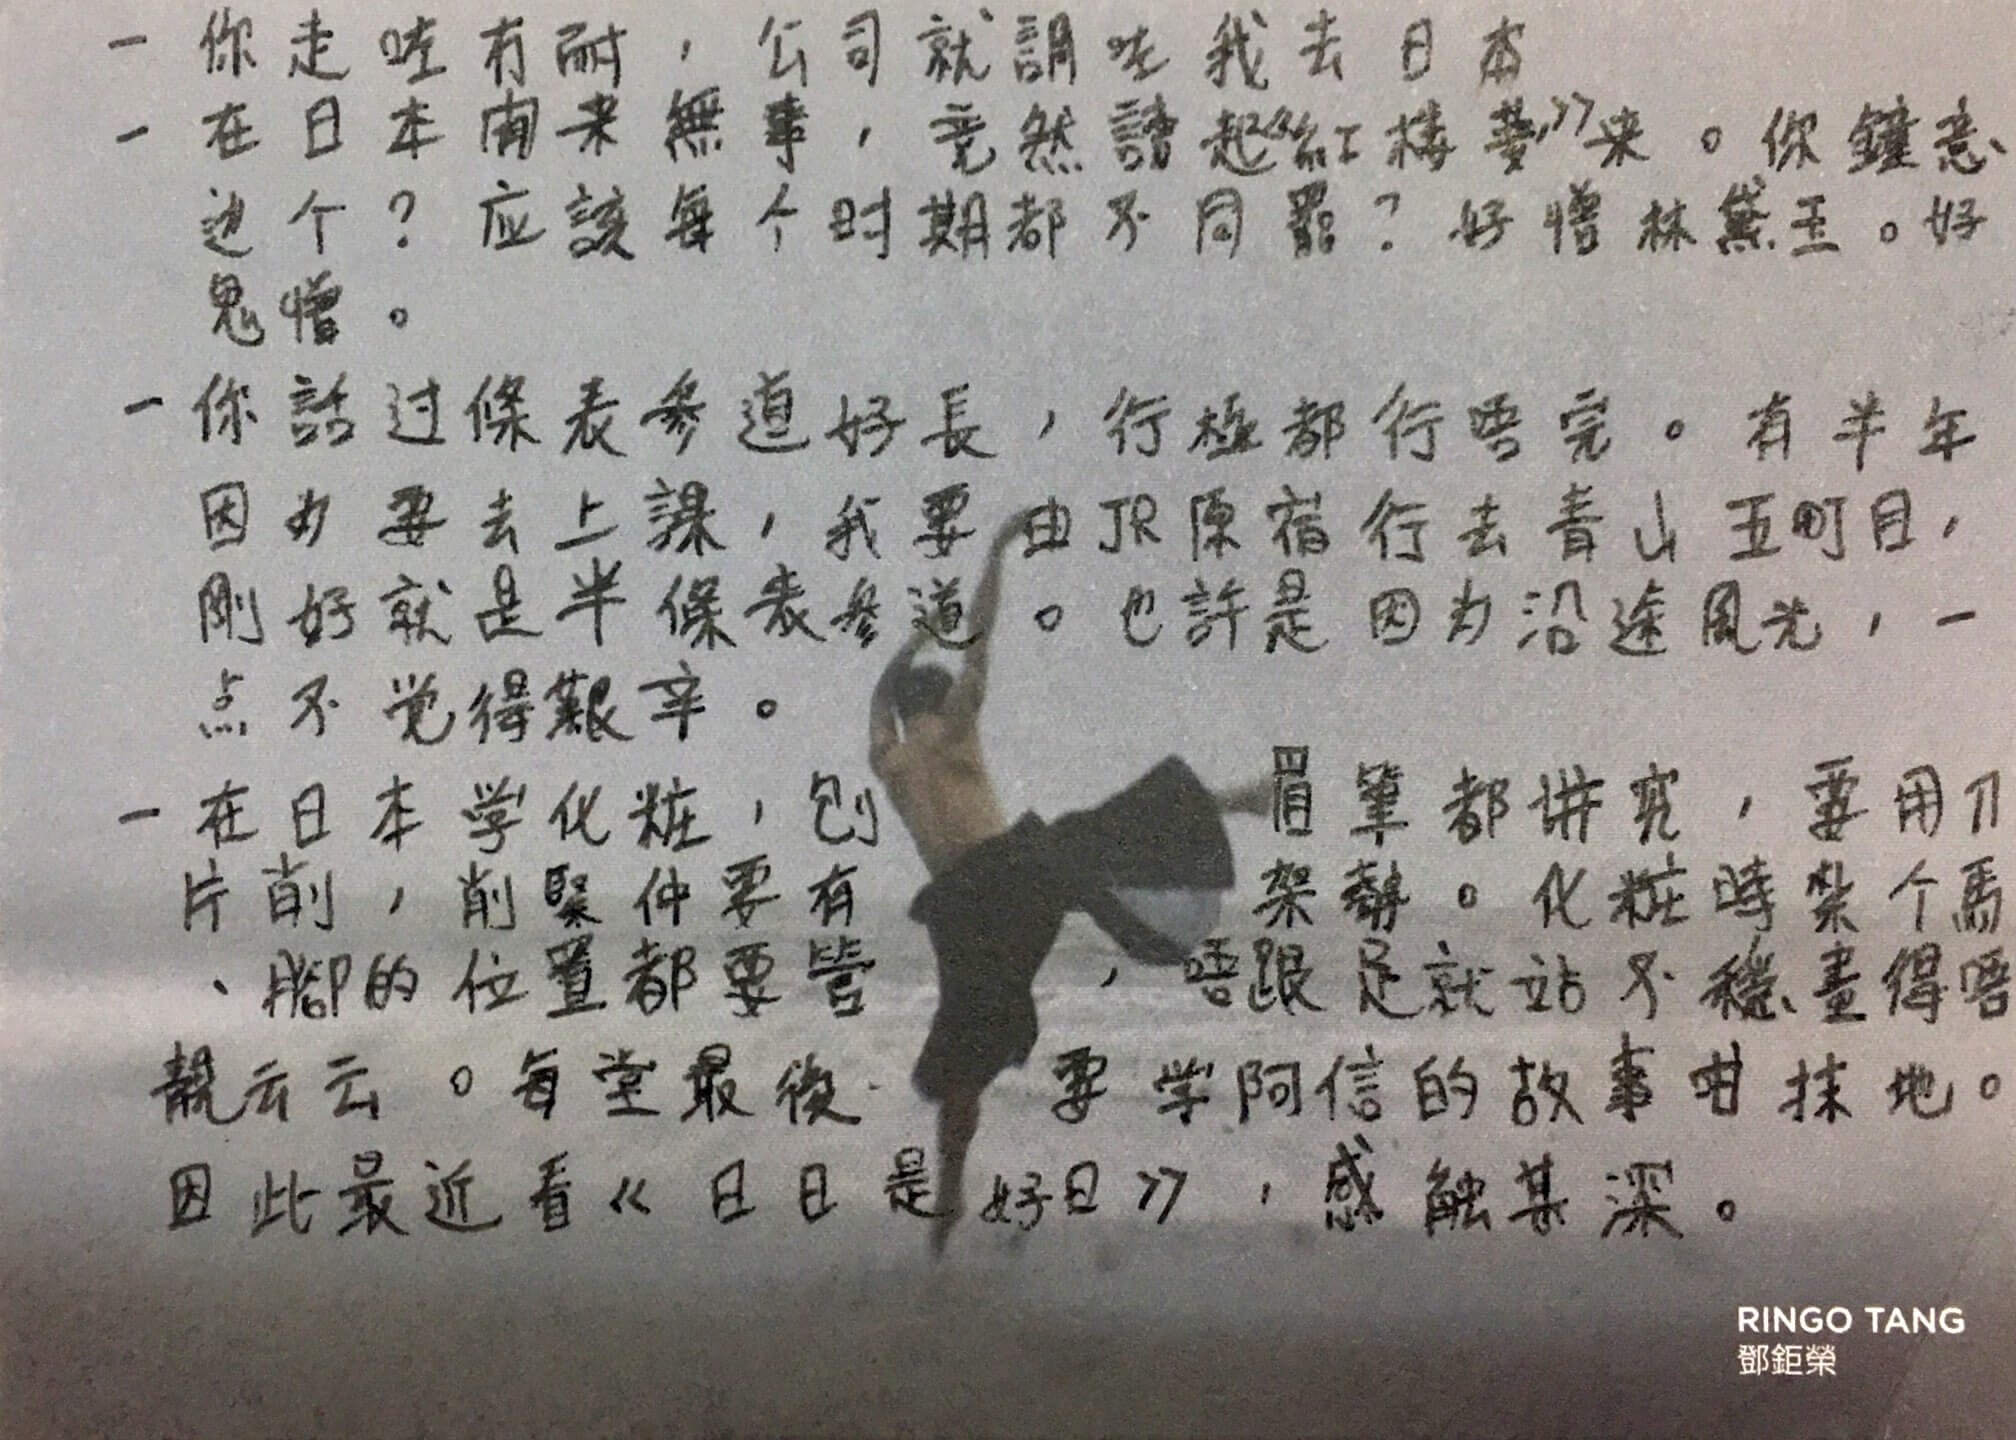 - 你走咗冇耐，公司就調咗我去日本
- 在日本閑来無事，竟然讀起《紅楼夢》来。你鐘意
边个？应該每个时期都不同罷？好憎林黛玉。好
鬼憎。
- 你話过條表参道好長，行極都行唔完。有半年
因为要去上課，我要由JR原宿行去青山五町目，
剛好就是半條表参道。也許是因为沿途風光，一
点不覚得艱辛。
- 在日本学化粧，刨眉筆都讲究，要用刀
片削，削緊仲要有架勢。化粧時紮个馬
、腳的位置都要啱，唔跟足就站不穩畫得唔
靚云云。每堂最後要学阿信的故事咁抹地。
因此最近看《日日是好日》，感触甚深。
RINGO TANG
鄧鉅榮